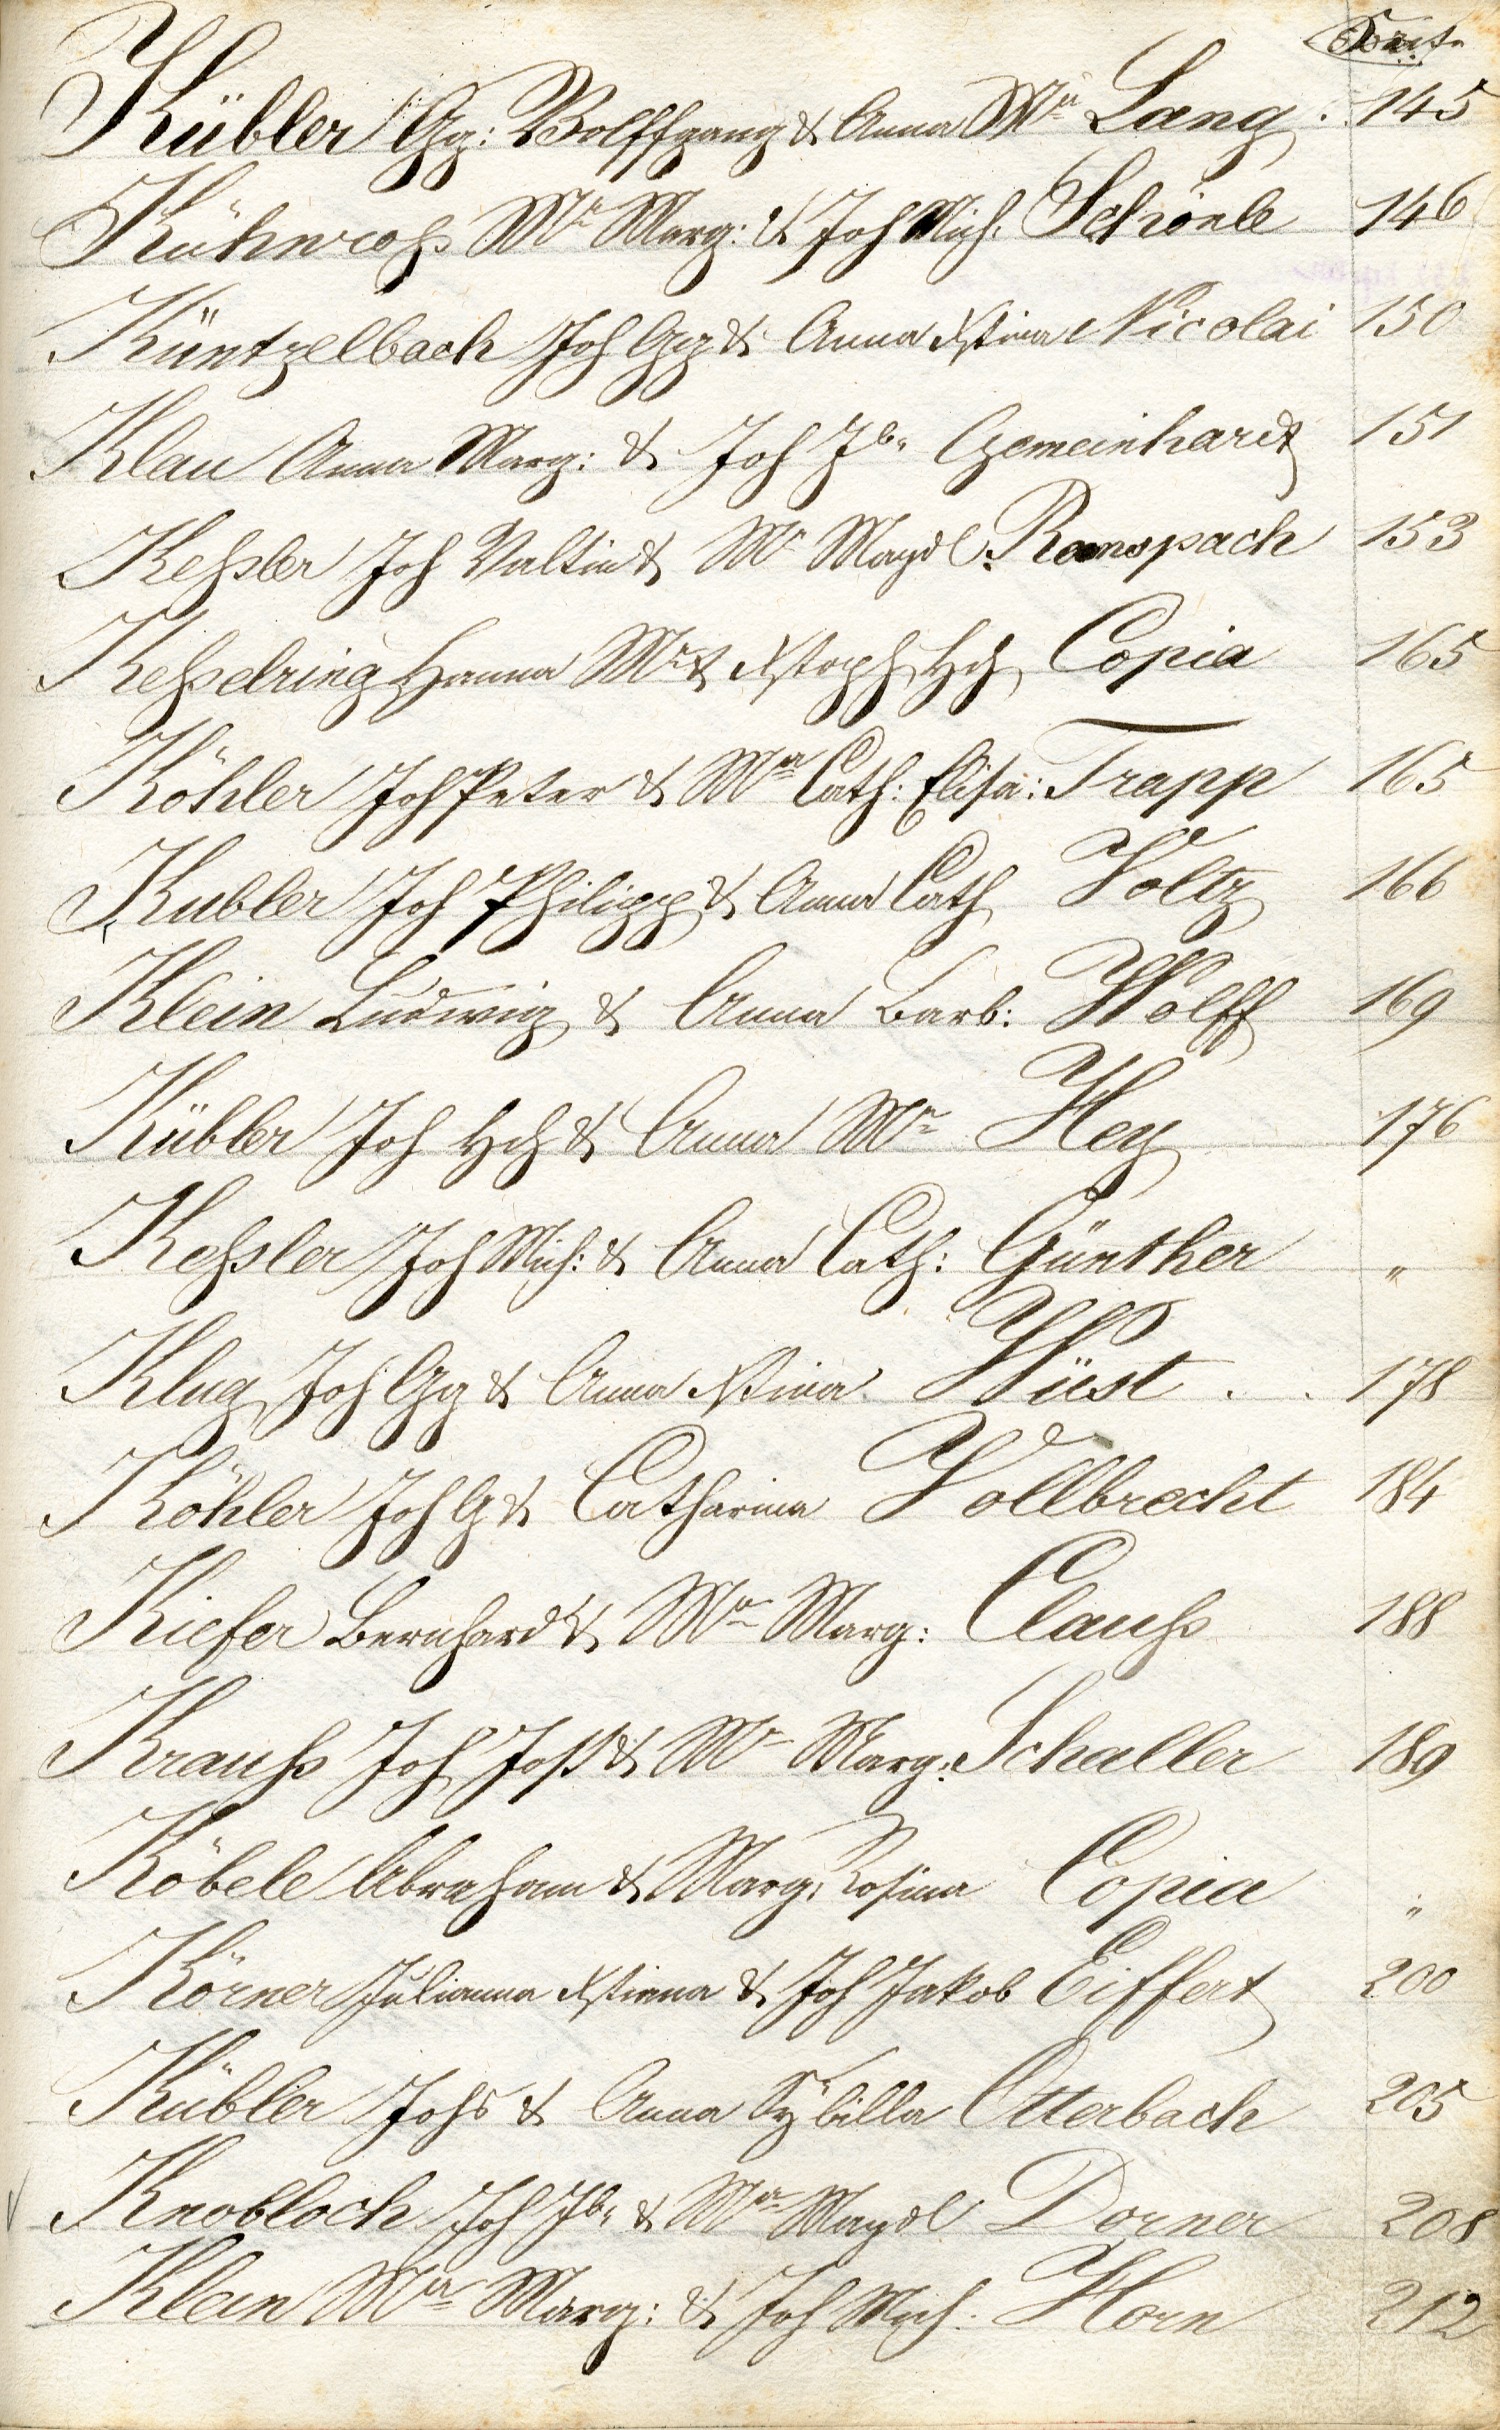 Seite
Kübler Gg: Wolffgang & Anna Ma Lang . 145
Kühnroß Ma Marg: & Joh Mich: Schönle 146
Küntzelbach Joh Gg & Anna Xstina Nicolai 150
Klau Anna Marg: & Joh Jb. Gemeinhardt 151
Keßler Joh Valtin & Ma Magdl: Ranspach 153
Keßelring Hanna Ma & Xstoph Hch Copia 165
Köhler Joh Peter & Ma Cath: Elisa: Trapp 165
Kubler Joh Philipp & Anna Cath Voltz 166
Klein Ludwig & Anna Barb: Wolff 169
Kübler Joh Hch & Anna Ma Hey 176
Keßler Joh Mich: & Anna Cath: Günther "
Klug Joh Gg & Anna Xstina Wüst . . 178
Köhler Joh G & Catharina Vollbrecht 184
Kiefer Bernhard & Ma Marg: Clauß 188
Krauß Joh Jost & Ma Marg: Schaller 189
Köbele Abraham & Marg: Rosina Copia "
Körner Julianna Xstiana & Joh Jakob Eiffert 200
Kübler Johs & Anna Sybilla Otterbach 205
Knobloch Joh Jb. & Ma Magdl Dorner 208
Klein Ma Marg: & Joh Mich. Horn 212